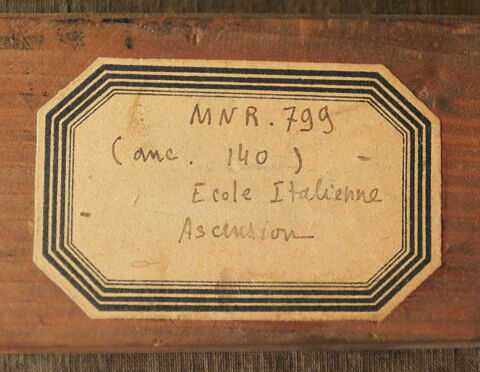 MNR. 799
(anc. 140)
Ecole Italienne
Ascension